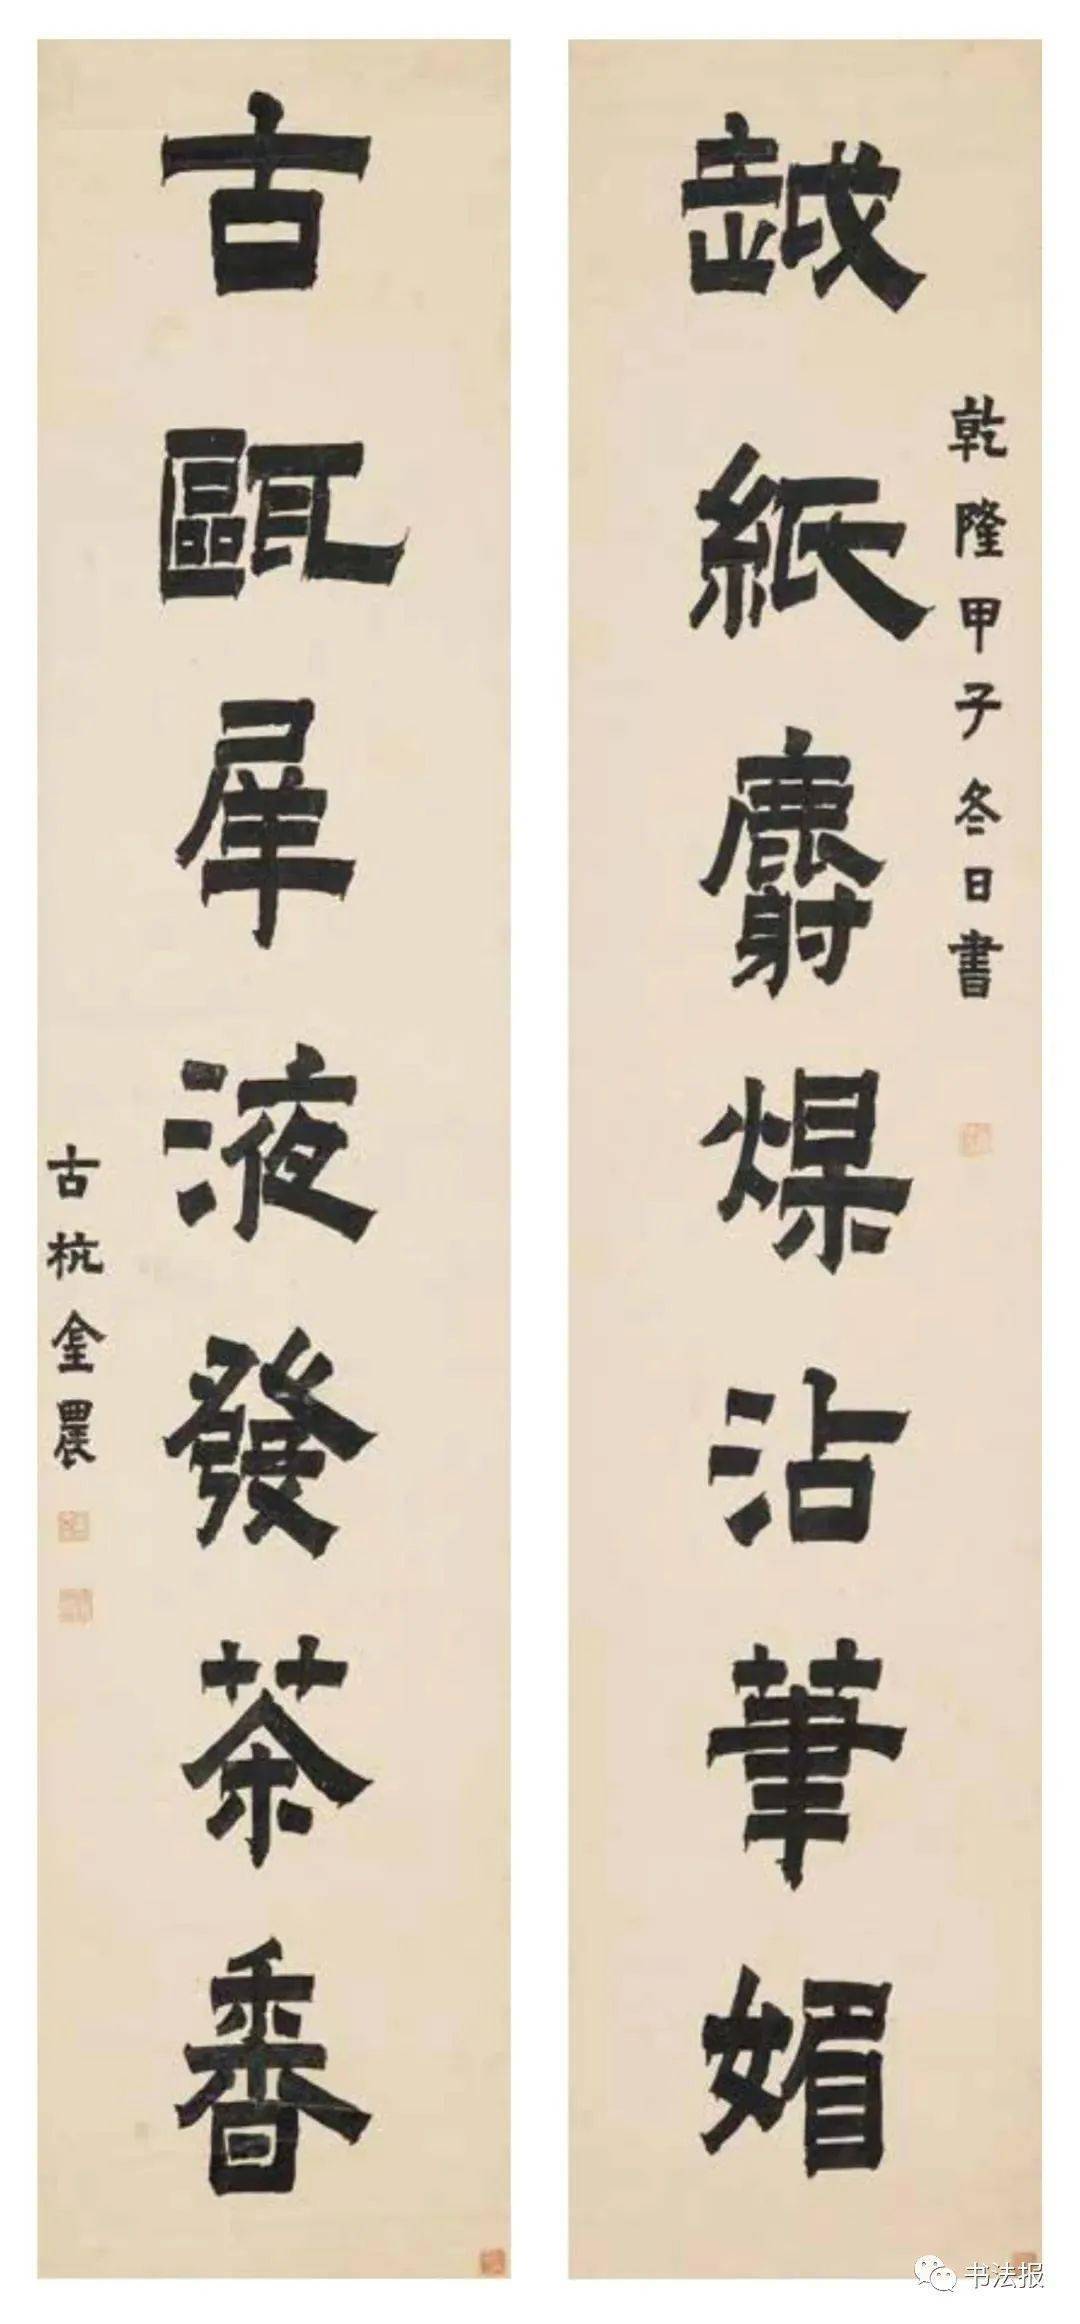 乾隆甲子冬日書
越紙麝煤沾筆媚
古甌犀液發茶香
古杭金農
书法报